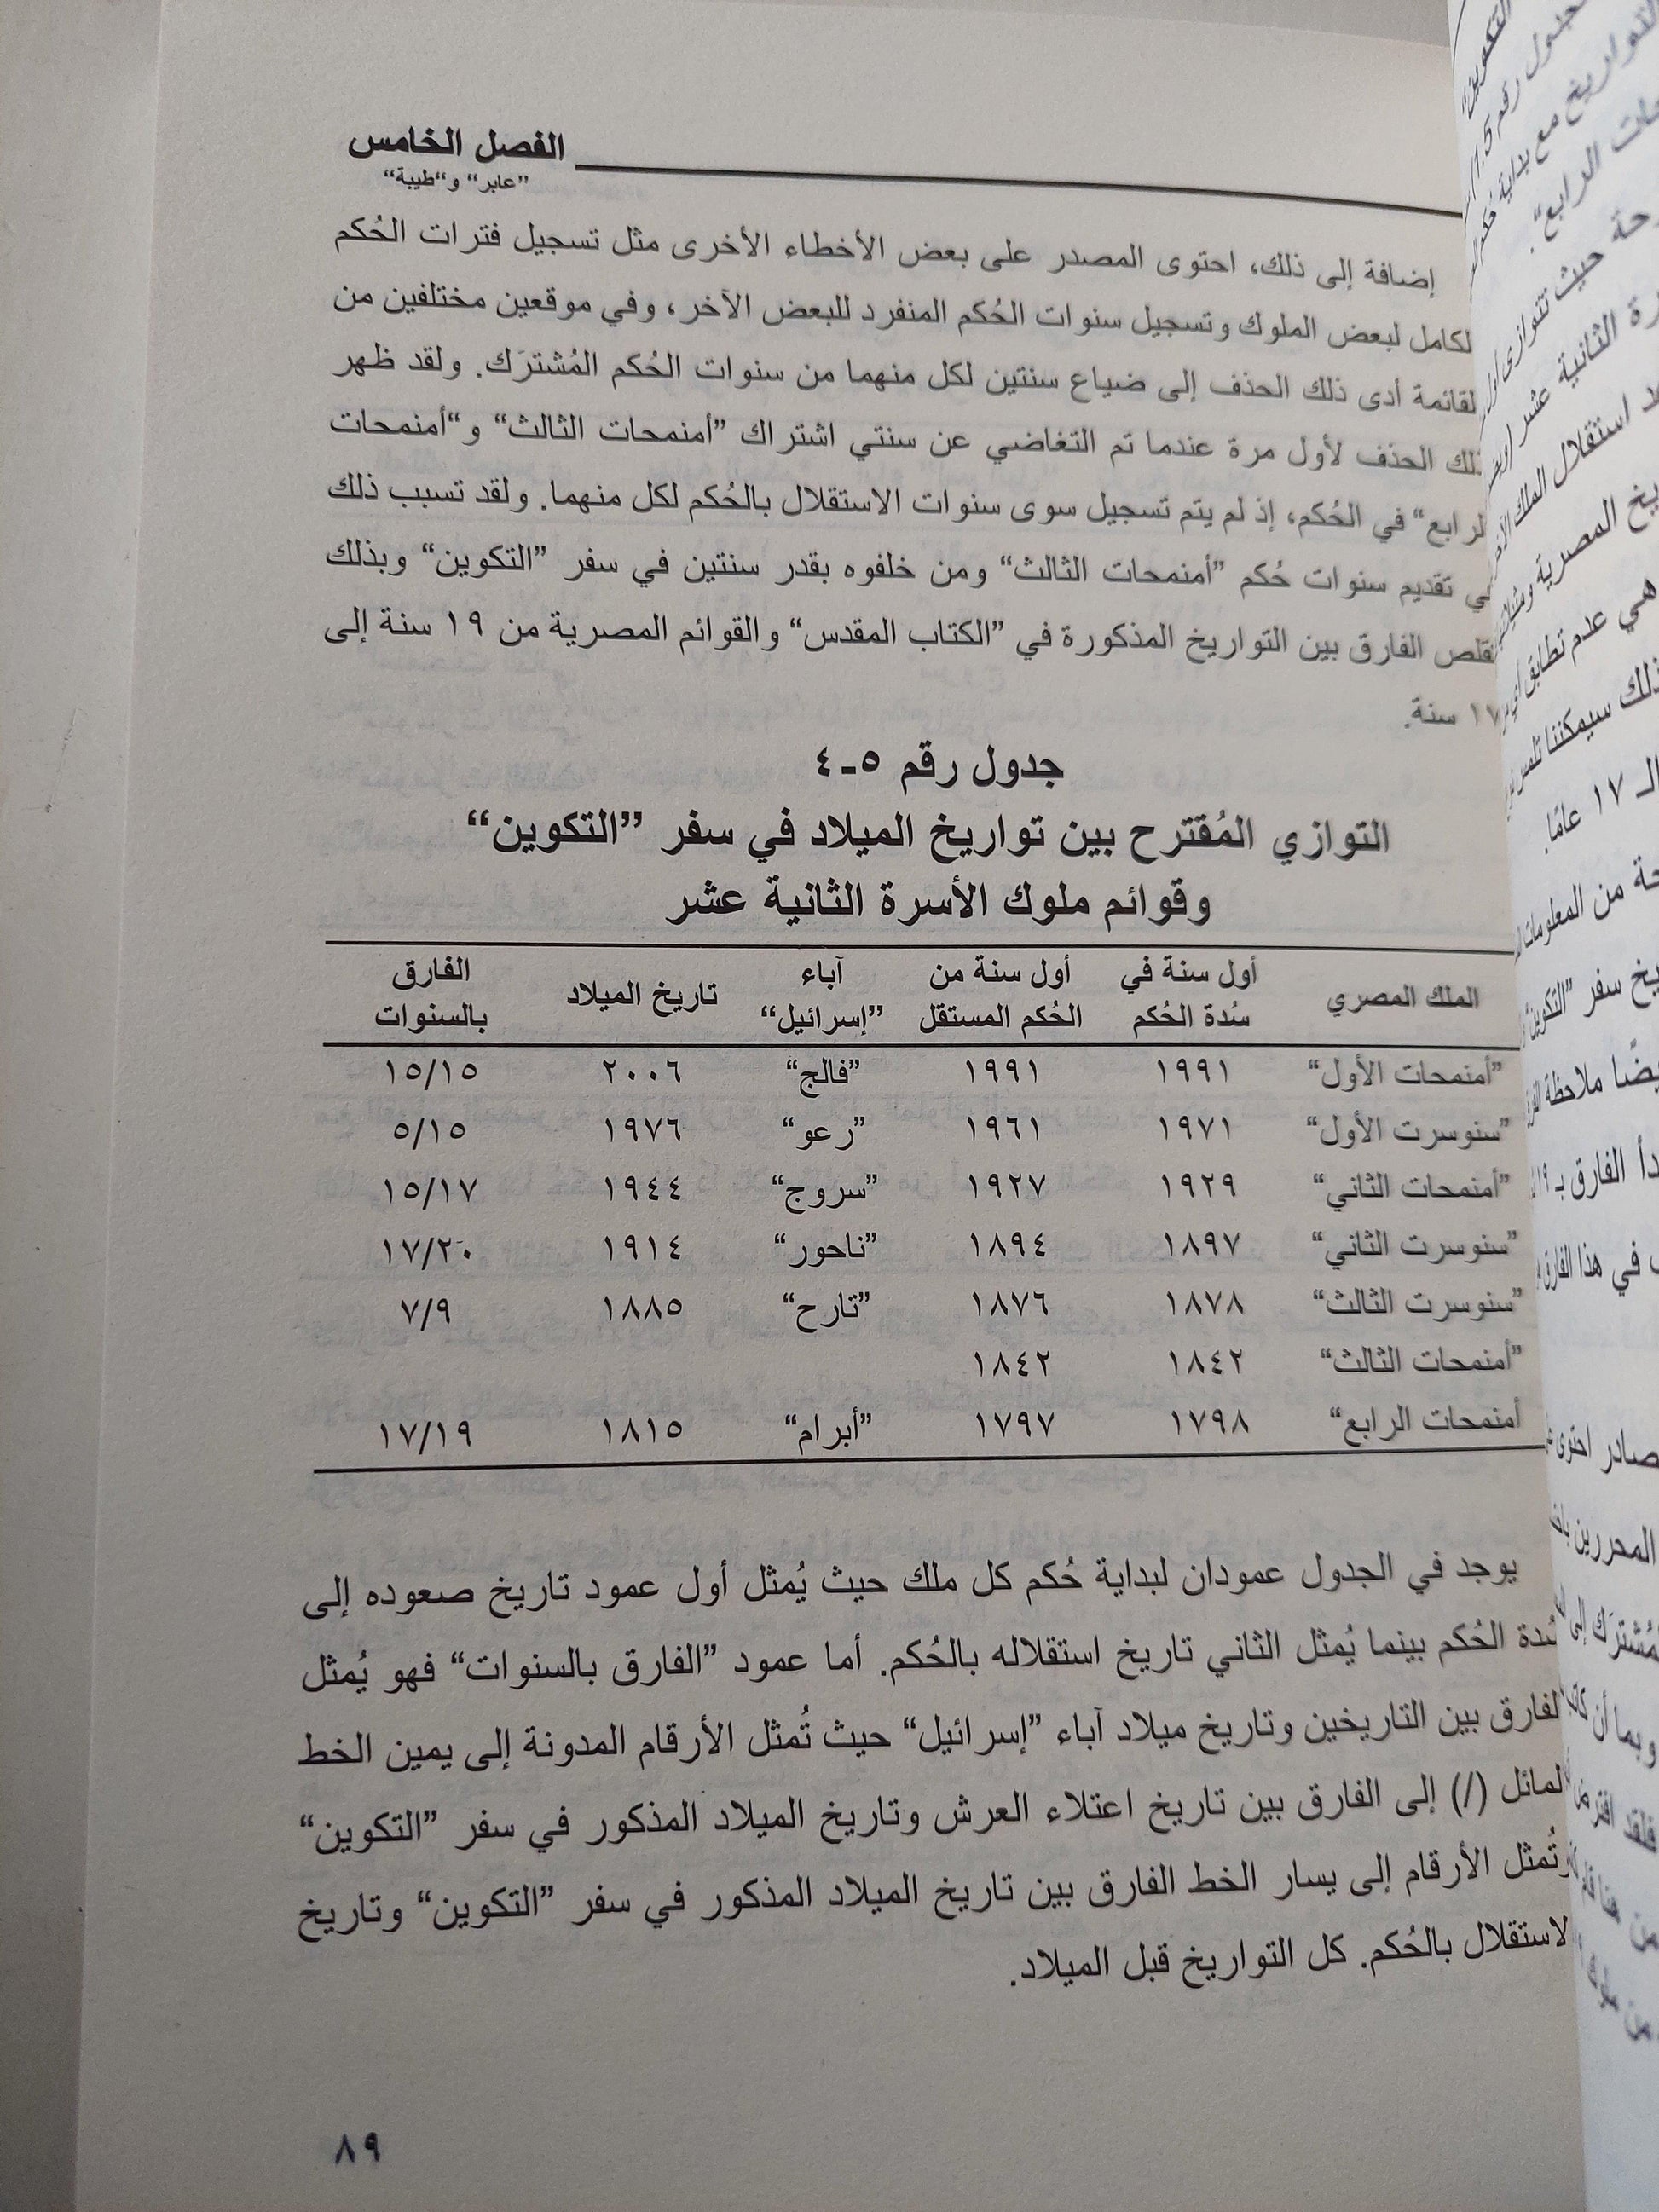 الفصل الخامس
”عابر“ و”طيبة“
إضافة إلى ذلك، احتوى المصدر على بعض الأخطاء الأخرى مثل تسجيل فترات الحُكم
لكامل لبعض الملوك وتسجيل سنوات الحُكم المنفرد للبعض الآخر، وفي موقعين مختلفين من
لقائمة أدى ذلك الحذف إلى ضياع سنتين لكل منهما من سنوات الحُكم المُشترَك. ولقد ظهر
ذلك الحذف لأول مرة عندما تم التغاضي عن سنتي اشتراك ”أمنمحات الثالث“ و”أمنمحات
لرابع“ في الحُكم، إذ لم يتم تسجيل سوى سنوات الاستقلال بالحُكم لكل منهما. ولقد تسبب ذلك
في تقديم سنوات حُكم ”أمنمحات الثالث“ ومن خلفوه بقدر سنتين في سفر ”التكوين“ وبذلك
تقلص الفارق بين التواريخ المذكورة في ”الكتاب المقدس“ والقوائم المصرية من ١٩ سنة إلى
١٧ سنة.
جدول رقم ٥-٤
التوازي المُقترح بين تواريخ الميلاد في سفر ”التكوين“
وقوائم ملوك الأسرة الثانية عشر
الملك المصري أول سنة في سُدة الحُكم أول سنة من الحُكم المستقل آباء ”إسرائيل“ تاريخ الميلاد الفارق بالسنوات
”أمنمحات الأول“ ١٩٩١ ١٩٩١ ”فالج“ ٢٠٠٦ ١٥/١٥
”سنوسرت الأول“ ١٩٧١ ١٩٦١ ”رعو“ ١٩٧٦ ٥/١٥
”أمنمحات الثاني“ ١٩٢٩ ١٩٢٧ ”سروج“ ١٩٤٤ ١٥/١٧
”سنوسرت الثاني“ ١٨٩٧ ١٨٩٤ ”ناحور“ ١٩١٤ ١٧/٢٠
”سنوسرت الثالث“ ١٨٧٨ ١٨٧٦ ”تارح“ ١٨٨٥ ٧/٩
”أمنمحات الثالث“ ١٨٤٢ ١٨٤٢
أمنمحات الرابع“ ١٧٩٨ ١٧٩٧ ”أبرام“ ١٨١٥ ١٧/١٩
يوجد في الجدول عمودان لبداية حُكم كل ملك حيث يُمثل أول عمود تاريخ صعوده إلى
سُدة الحُكم بينما يُمثل الثاني تاريخ استقلاله بالحُكم. أما عمود ”الفارق بالسنوات“ فهو يُمثل
لفارق بين التاريخين وتاريخ ميلاد آباء ”إسرائيل“ حيث تُمثل الأرقام المدونة إلى يمين الخط
لمائل (/) إلى الفارق بين تاريخ اعتلاء العرش وتاريخ الميلاد المذكور في سفر ”التكوين“
وتُمثل الأرقام إلى يسار الخط الفارق بين تاريخ الميلاد المذكور في سفر ”التكوين“ وتاريخ
لاستقلال بالحُكم. كل التواريخ قبل الميلاد.
٨٩